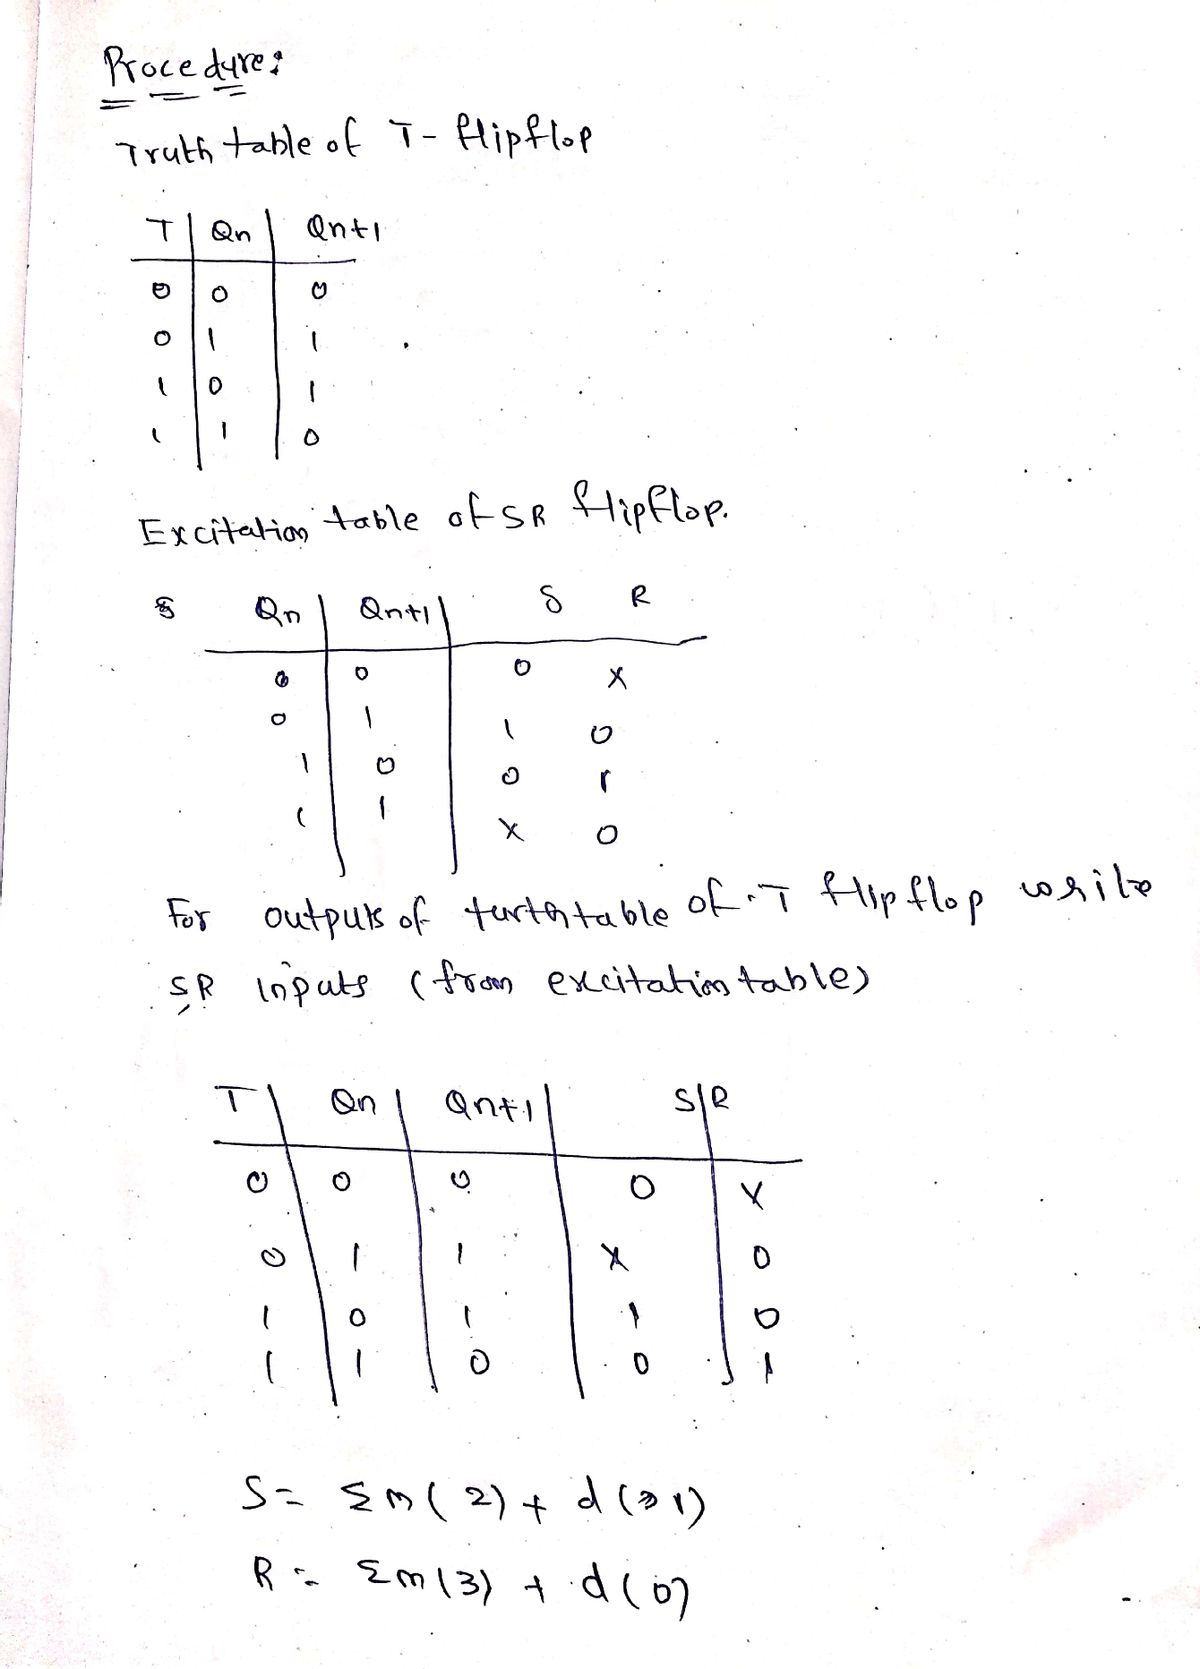 Procedure:
Truth table of T- flipflop
T | Qn | Qn+1
0 | 0 | 0
0 | 1 | 1
1 | 0 | 1
1 | 1 | 0
Excitation table of SR flipflop.
Qn | Qn+1 | S R
0 | 0 | 0 X
0 | 1 | 1 0
1 | 0 | 0 1
1 | 1 | X 0
For outputs of turth table of T flip flop write
SR inputs (from excitation table)
T | Qn | Qn+1 | S | R
0 | 0 | 0 | 0 | X
0 | 1 | 1 | X | 0
1 | 0 | 1 | 1 | 0
1 | 1 | 0 | 0 | 1
S = Σm(2) + d(1)
R = Σm(3) + d(0)